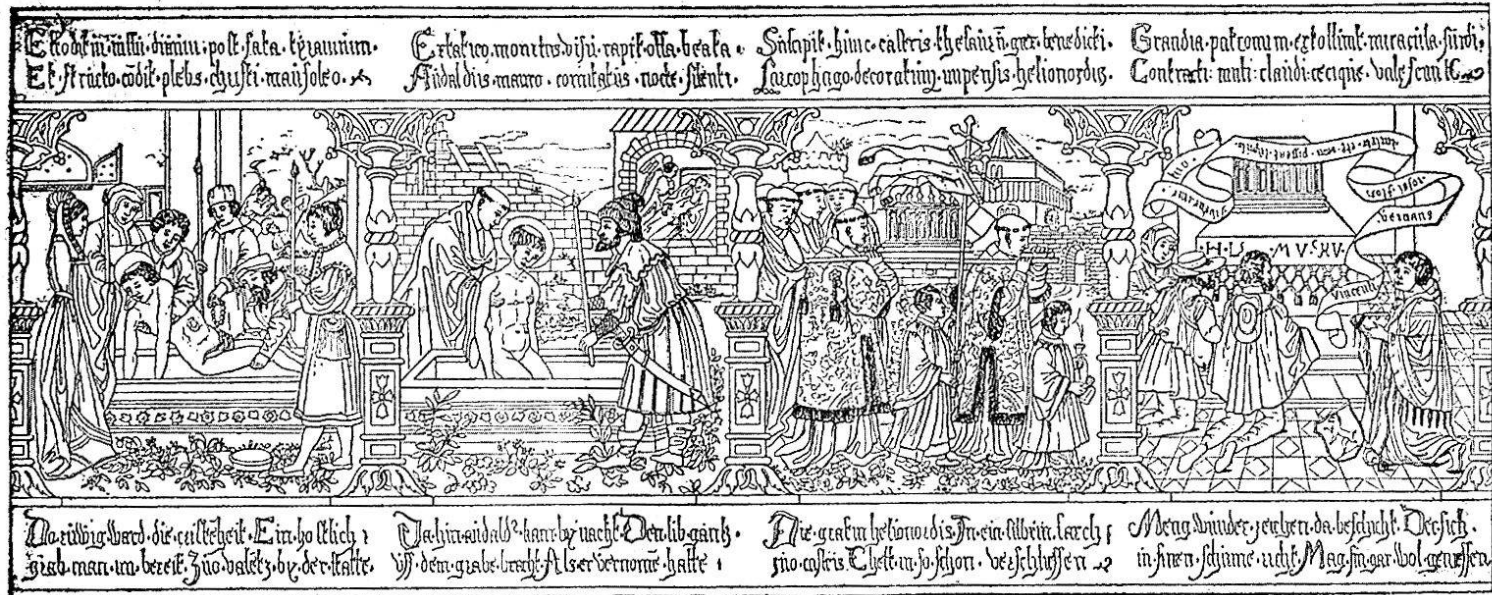 post·fata·tyrannum.
Et·structo·cōdit·plebs·christi·mausoleo.
Extatico·monitus·visu·rapit·ossa·beata·
Audaldus·mauro·comitatus·nocte·silenti·
Suscipit·hinc·castris·thesaurū·grex·benedicti·
Sarcophago·decoratum·impensis·helionordis
Grandia·patronum·extollunt·miracula·surdi·
Contracti:muti:claudi:cecique·valescunt
Vincenti
Do·ruwig·ward·die·cristēheit·Ein·kostlich
grab·man·im·bereit·Zuo·valetz·by·der·statte·
Da·hin·audald⁹·kam·by·nacht·Den·lib·gantz·
uss·dem·grabe·bracht·Als·er·vernomē·hatte·
Die·grafin·helionordis·In·ein·silbrin·sarch
zno·castris·Thett·in·so·schon·verschliessen
Meng·wunder·zeichen·da·beschicht·Der·sich·
in·sinen·schirme·richt·Mag·sin·gar·wol·geniessen